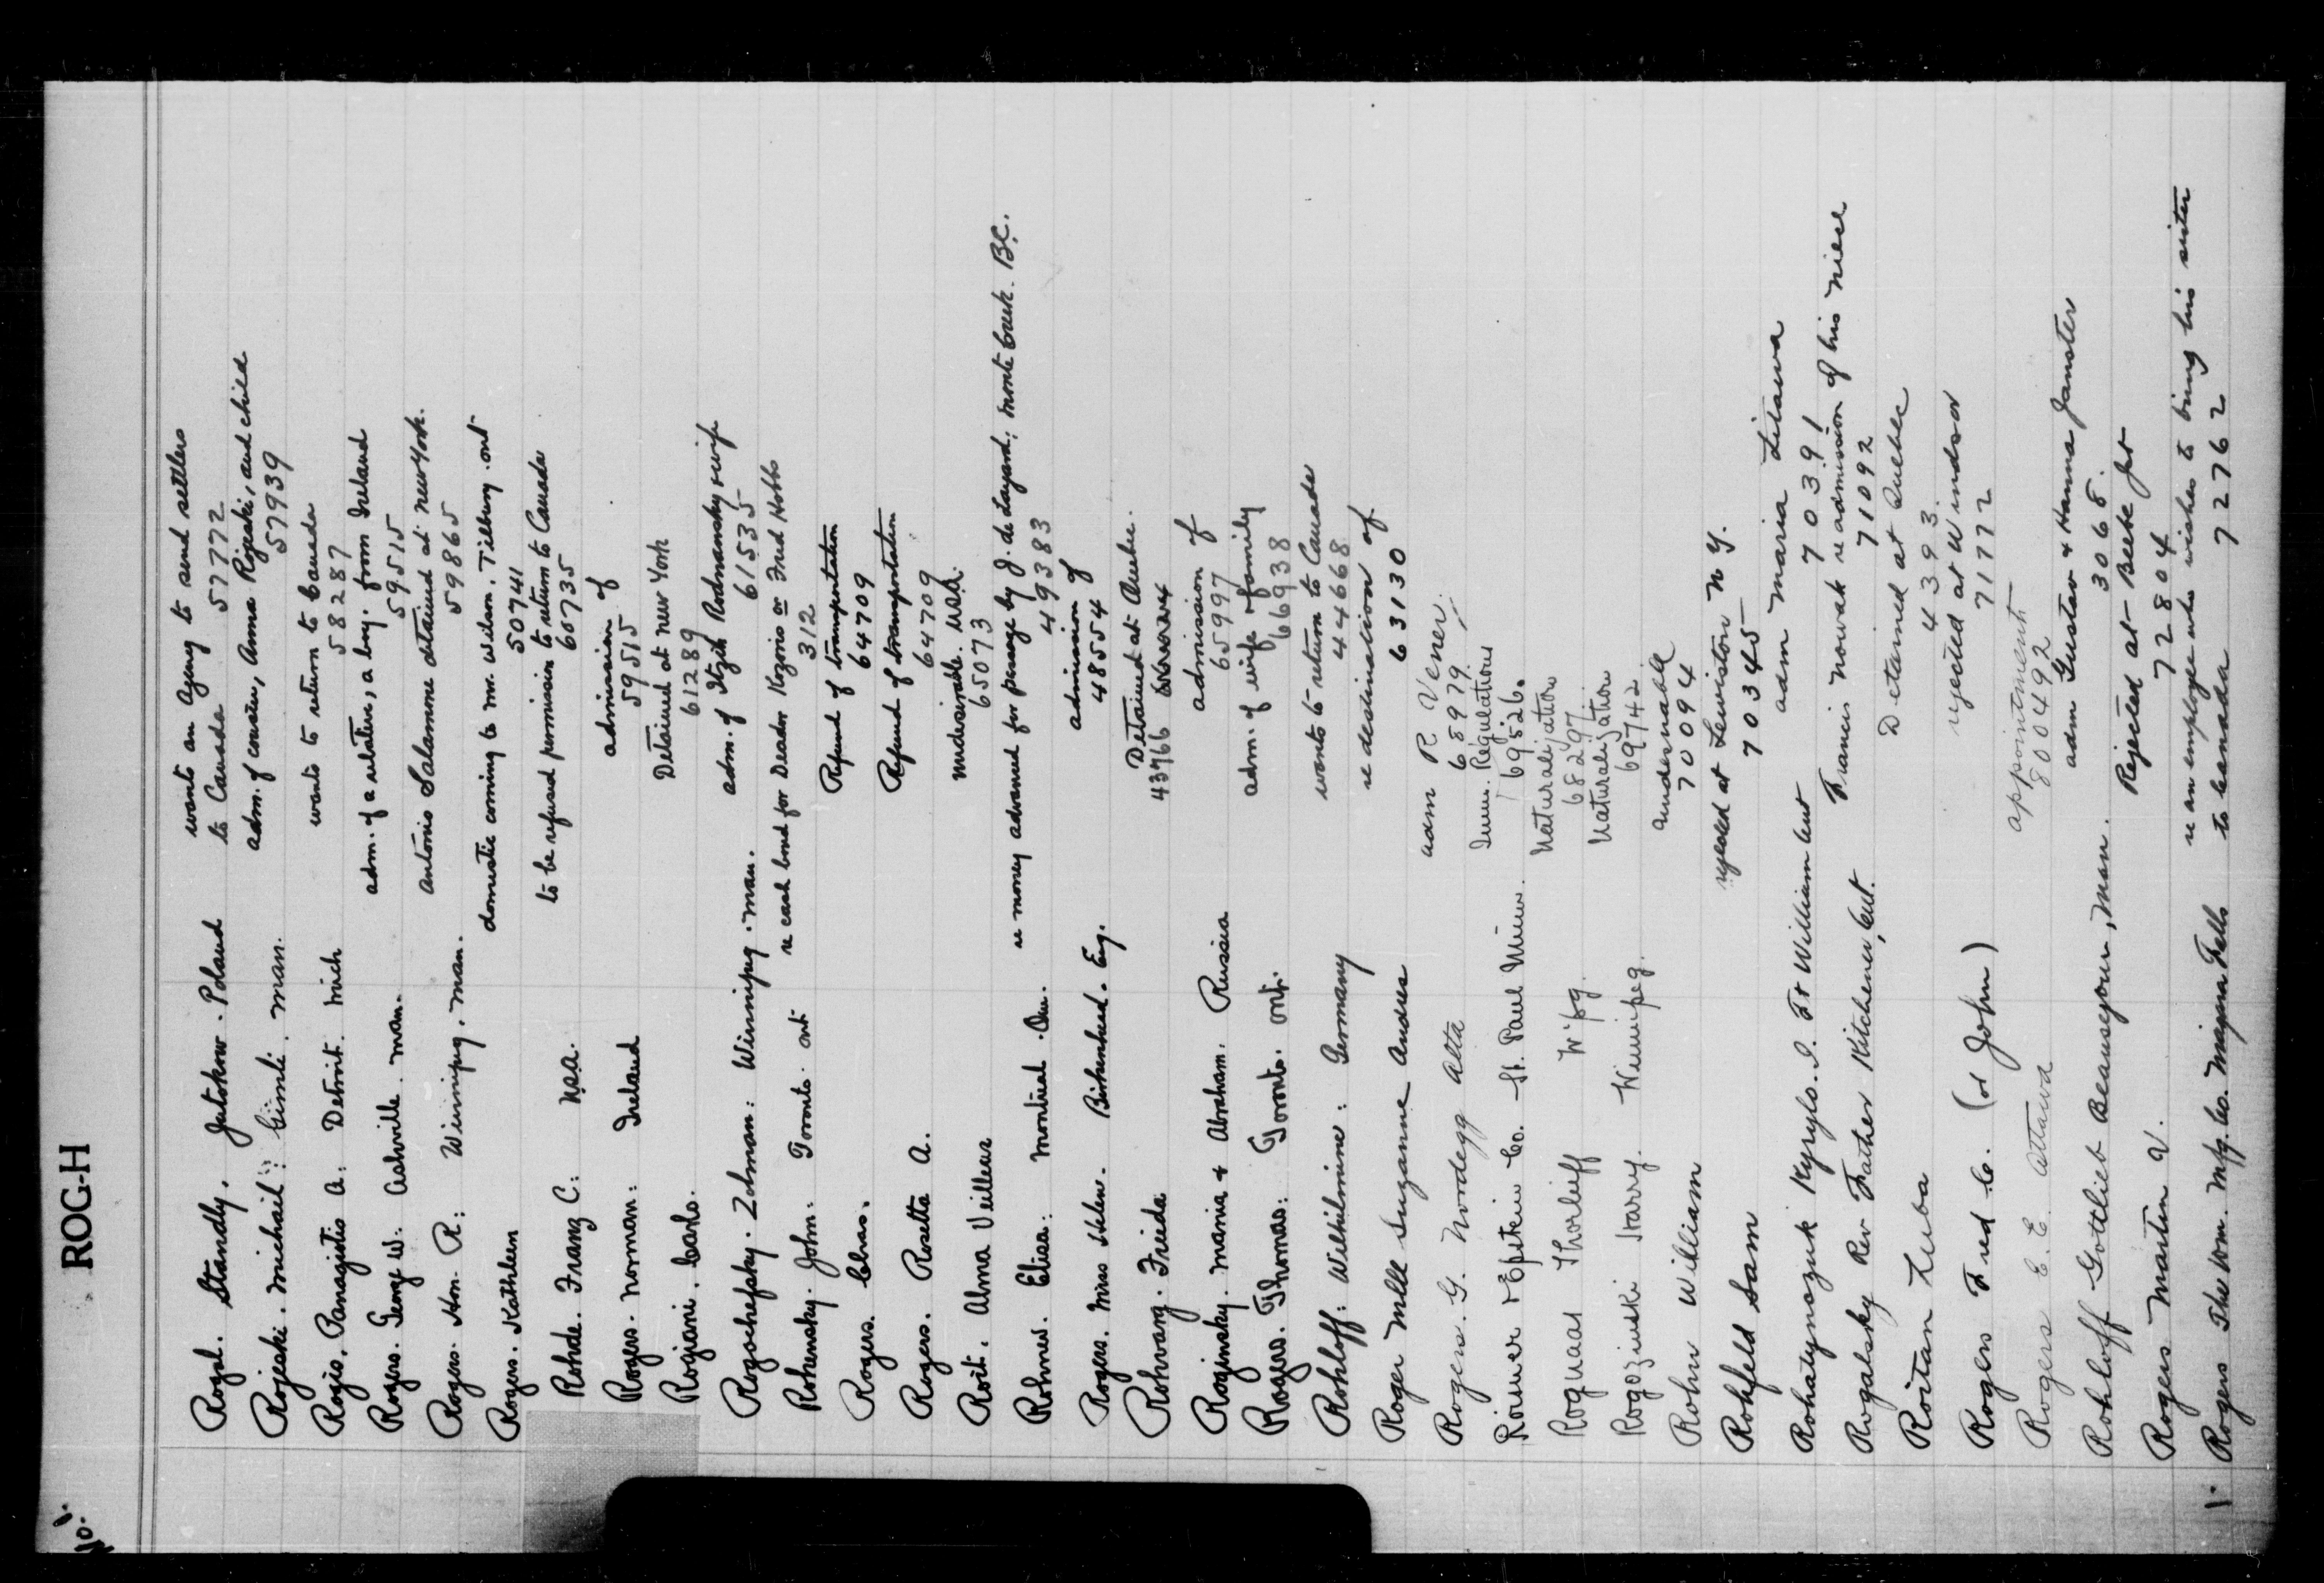 ROG-H
No. 1.
Rogal. Standly. Jutskow. Poland wants an agency to send settlers
to Canada 57772
Rojeski. Michail: Gimli. Man. adm. of cousin, Anna Rojeski, and child
57939
Rogis. Panagiotis A: Detroit. Mich wants to return to Canada
58287
Rogers. George W. Ashville. Man. adm. of a relative, a boy. from Ireland
59515
Rogers. Hon. R: Winnipeg. Man. Antonio Salamone detained at New York.
59865
Rogers. Kathleen domestic coming to Mr. Wilson. Tilbury. Ont
50741
Rohde. Franz C: U.S.A. to be refused permission to return to Canada
60735
Rogers. Norman: Ireland admission of
59515
Rogiani. Carlo. Detained at New York
61289
Rogochefsky. Zolman: Winnipeg. Man. adm. of Itzik Rodmansky wife
61535
Rohensky. John: Toronto. Ont re cash bond for Deador Kozoris or Fred Hobbs
312
Rogers. Chas. Refund of transportation
64709
Rogers. Rosetta A. Refund of transportation
64709
Roit. Alma Veilleux Undesirable. U.S.A.
65073
Rohner. Elisa: Montreal. Que. re money advanced for passage by J. de Layard: Monte Creek. B.C.
49383
Rogers. Mrs Helen. Birkenhead. Eng. admission of
48554
Rohrang. Frieda Detained at Quebec.
43766
Roginsky. Mania & Abraham. Russia admission of
65997
Rogers. Thomas: Toronto. Ont. adm. of wife & family
66938
Rohloff: Wilhilmine: Germany wants to return to Canada
44668
Roger Mlle Suzanne Andree re destination of
63130
Rogers. G. Nordegg Alta adm R. Vener.
68979
Roemer & Epstein Co. St. Paul Minn. Imm. Regulations
69526.
Rognaas Thorlieff W'pg. Naturalization
68297
Rogozinski Harry. Winnipeg. Naturalization
69742
Rohn William undesirable
70094
Rohfeld Sam rejected at Lewiston N Y.
70345
Rohatynozuk Kyrylo. I. Ft William Ont adm Maria Litawa
70391
Rogalsky Rev Father Kitchener, Ont. Francis Nowak re admission of his niece
71092
Roitan Luba Detained at Quebec
4393.
Rogers Fred C. (or John) rejected at Windsor
71772
Rogers E.E. Ottawa appointment
800492
Rohloff Gottlieb Beausejour, Man. adm Gustav & Hanna Janster
3068.
Rogers Martin V. Rejected at Beebe Jct
72804
1. Rogers The Wm. Mfg. Co. Niagara Falls re an employee who wishes to bring his sister
to Canada 72762